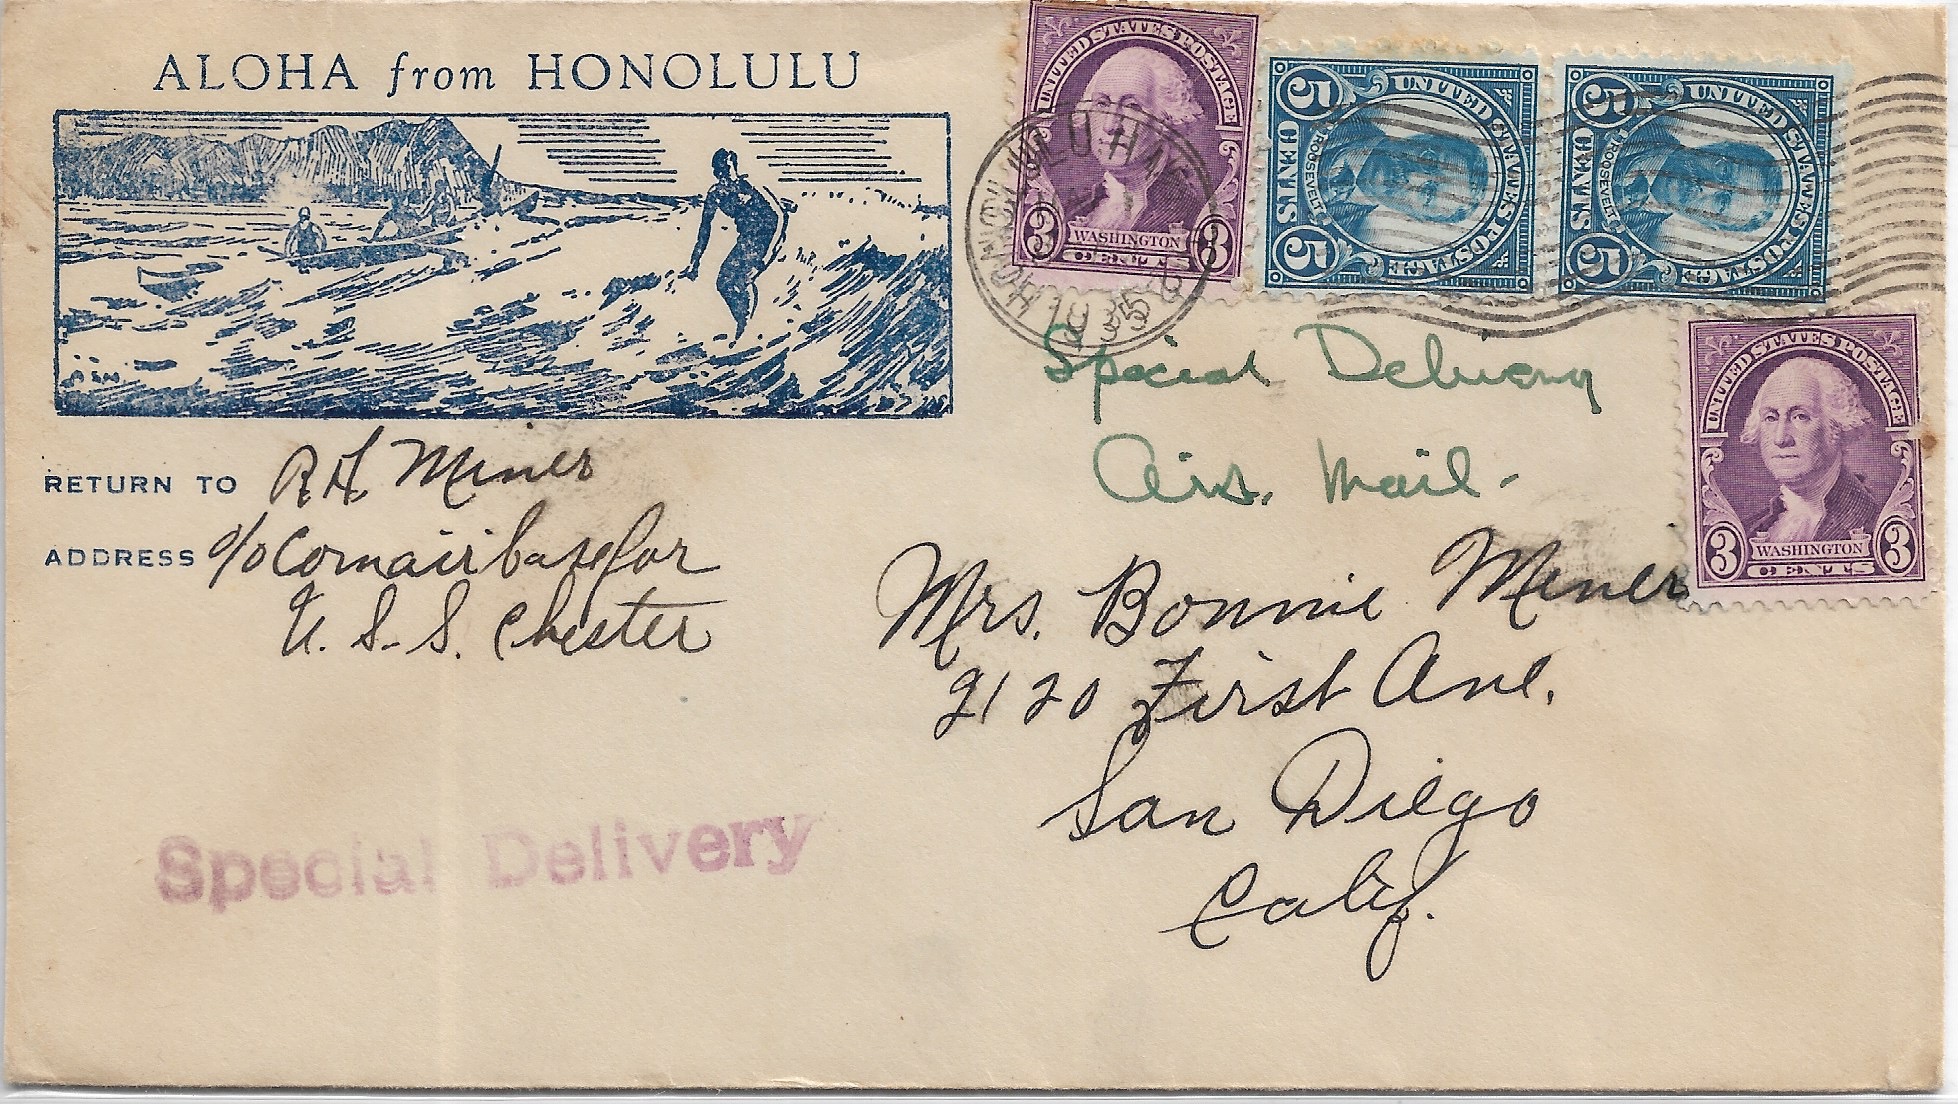 ALOHA from HONOLULU
RETURN TO R H. Miner
ADDRESS c/o Comairbasefor
U. S. S. Chester
UNITED STATES POSTAGE
3 WASHINGTON 3
CENTS
UNITED STATES POSTAGE
5 CENTS 5
ROOSEVELT
UNITED STATES POSTAGE
5 CENTS 5
ROOSEVELT
HONOLULU HAWAII
1935
UNITED STATES POSTAGE
3 WASHINGTON 3
CENTS
Special Delivery
Air. Mail.
Mrs. Bonnie Miner
2120 First Ave.
San Diego
Calif.
Special Delivery